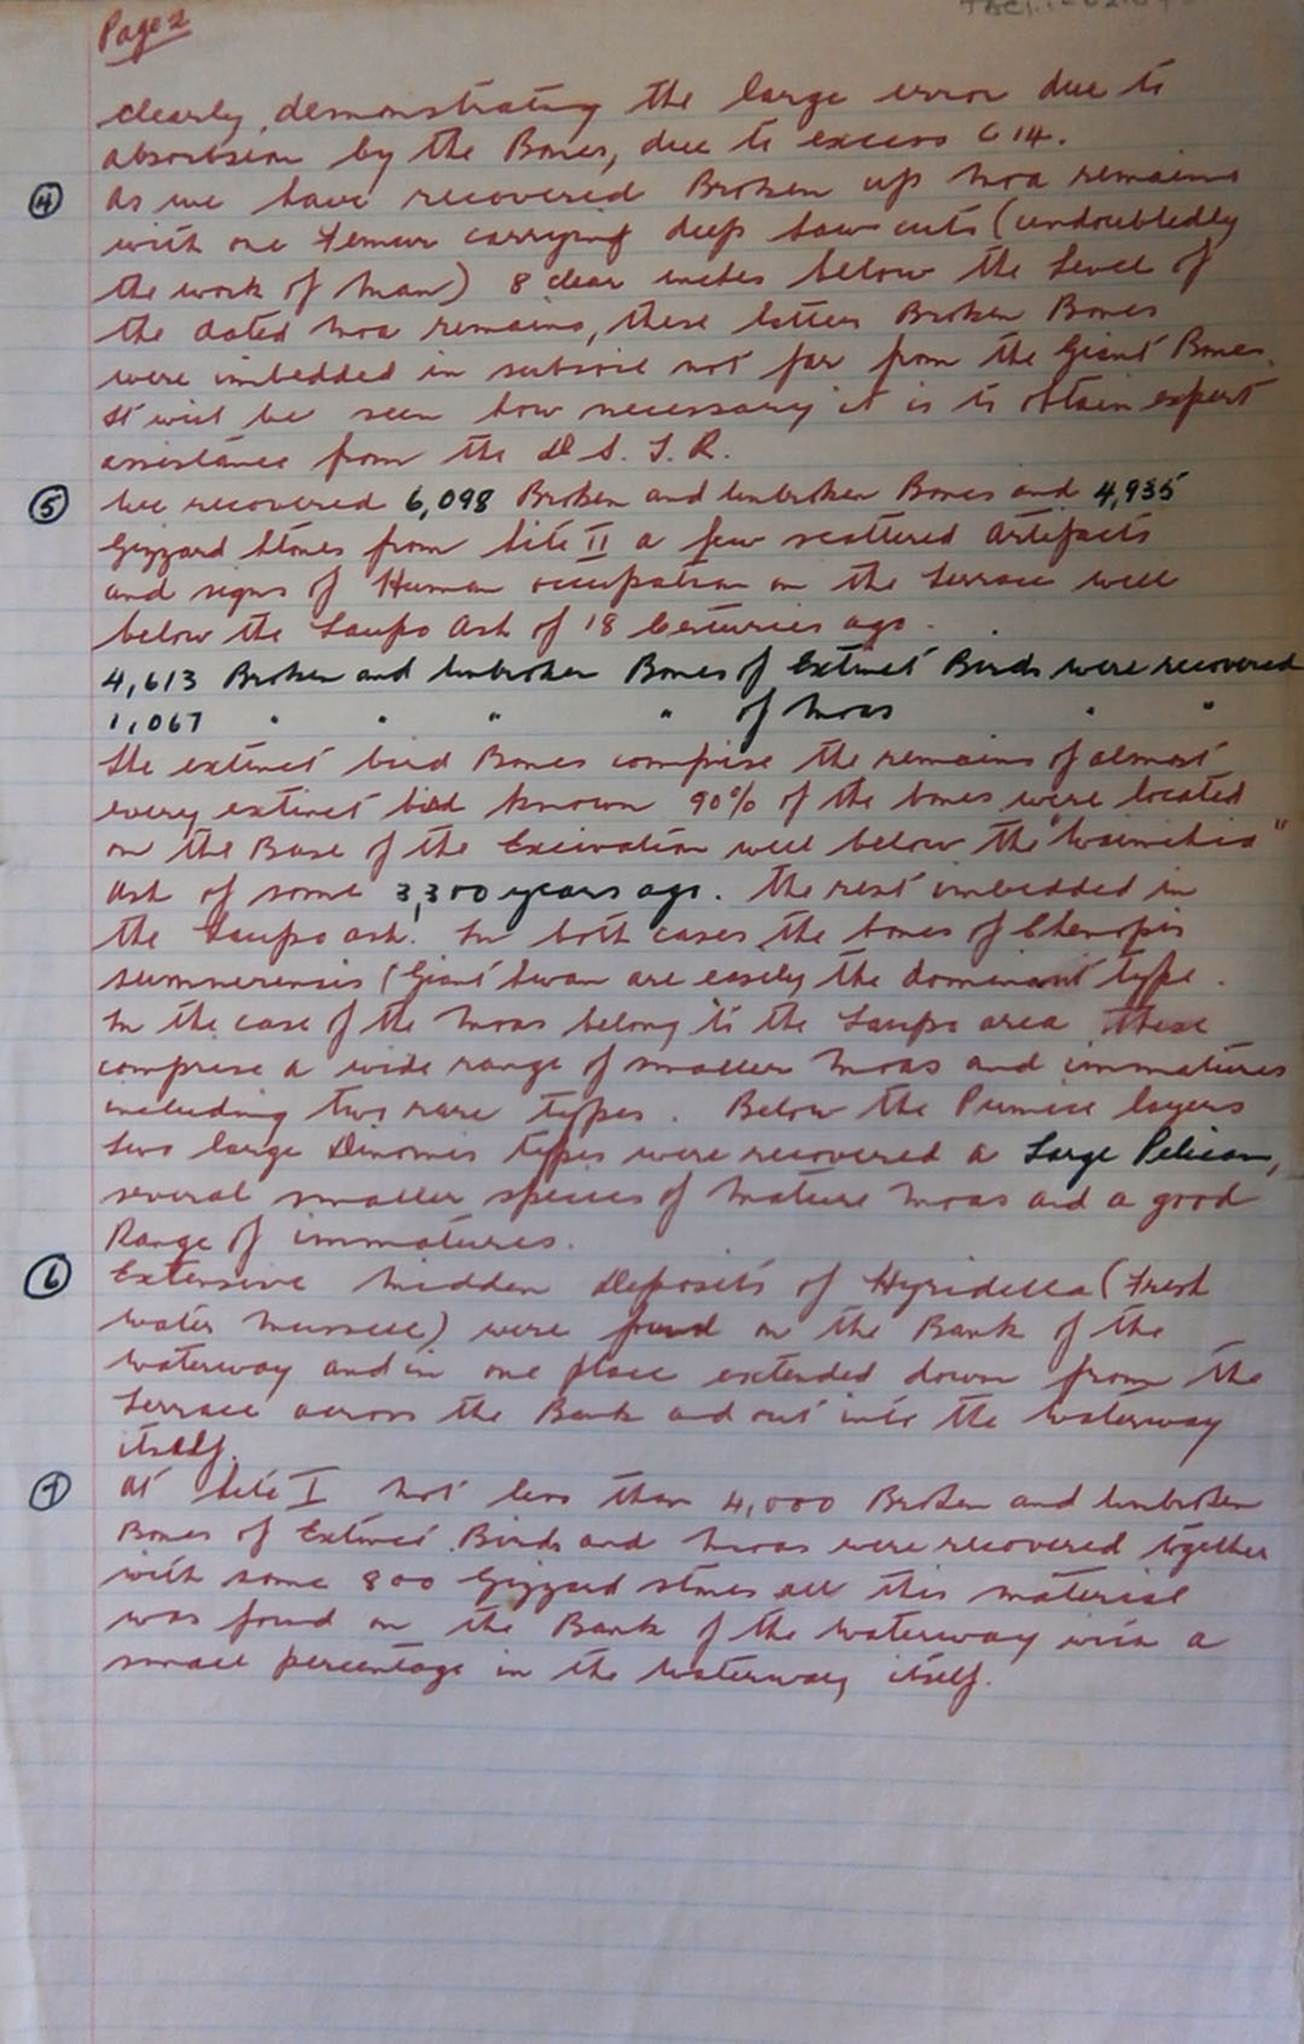 Page 2
clearly, demonstrating the large error due to
absorbsion by the Bones, due to excess C 14.
④ As we have recovered Broken up Moa remains
with one Femur carrying deep Saw cuts (undoubtedly
the work of Man) 8 clear inches below the Level of
the dated Moa remains, these latter Broken Bones
were imbedded in subsoil not far from the Giant Bones.
It will be seen how necessary it is to obtain expert
assistance from the D. S. I. R.
⑤ We recovered 6,098 Broken and Unbroken Bones and 4,935
Gizzard Stones from Site II a few scattered Artefacts
and signs of Human occupation on the Terrace well
below the Taupo Ash of 18 Centuries ago.
4,613 Broken and Unbroken Bones of Extinct Birds were recovered
1,067 " " " " of Moas " "
The extinct bird Bones comprise the remains of almost
every extinct bird known 90% of the bones were located
on the Base of the Excivation well below the "Waimihia"
Ash of some 3,300 years ago. The rest imbedded in
the Taupo ash. In both cases the bones of Chenopis
sumnerensis (Giant Swan are easily the dominant type.
In the case of the Moas belong to the Taupo area these
comprise a wide range of smaller Moas and immatures
including two rare types. Below the Pumice layers
two large Dinornis types were recovered a Large Pelican,
several smaller species of Mature Moas and a good
Range of immatures.
⑥ Extensive Midden Deposits of Hyridella (Fresh
water Mussell) were found on the Bank of the
Waterway and in one place extended down from the
Terrace across the Bank and out into the Waterway
itself.
⑦ At Site I Not less than 4,000 Broken and Unbroken
Bones of Extinct Birds and Moas were recovered together
with some 800 Gizzard stones all this material
was found on the Bank of the Waterway with a
small percentage in the Waterway itself.